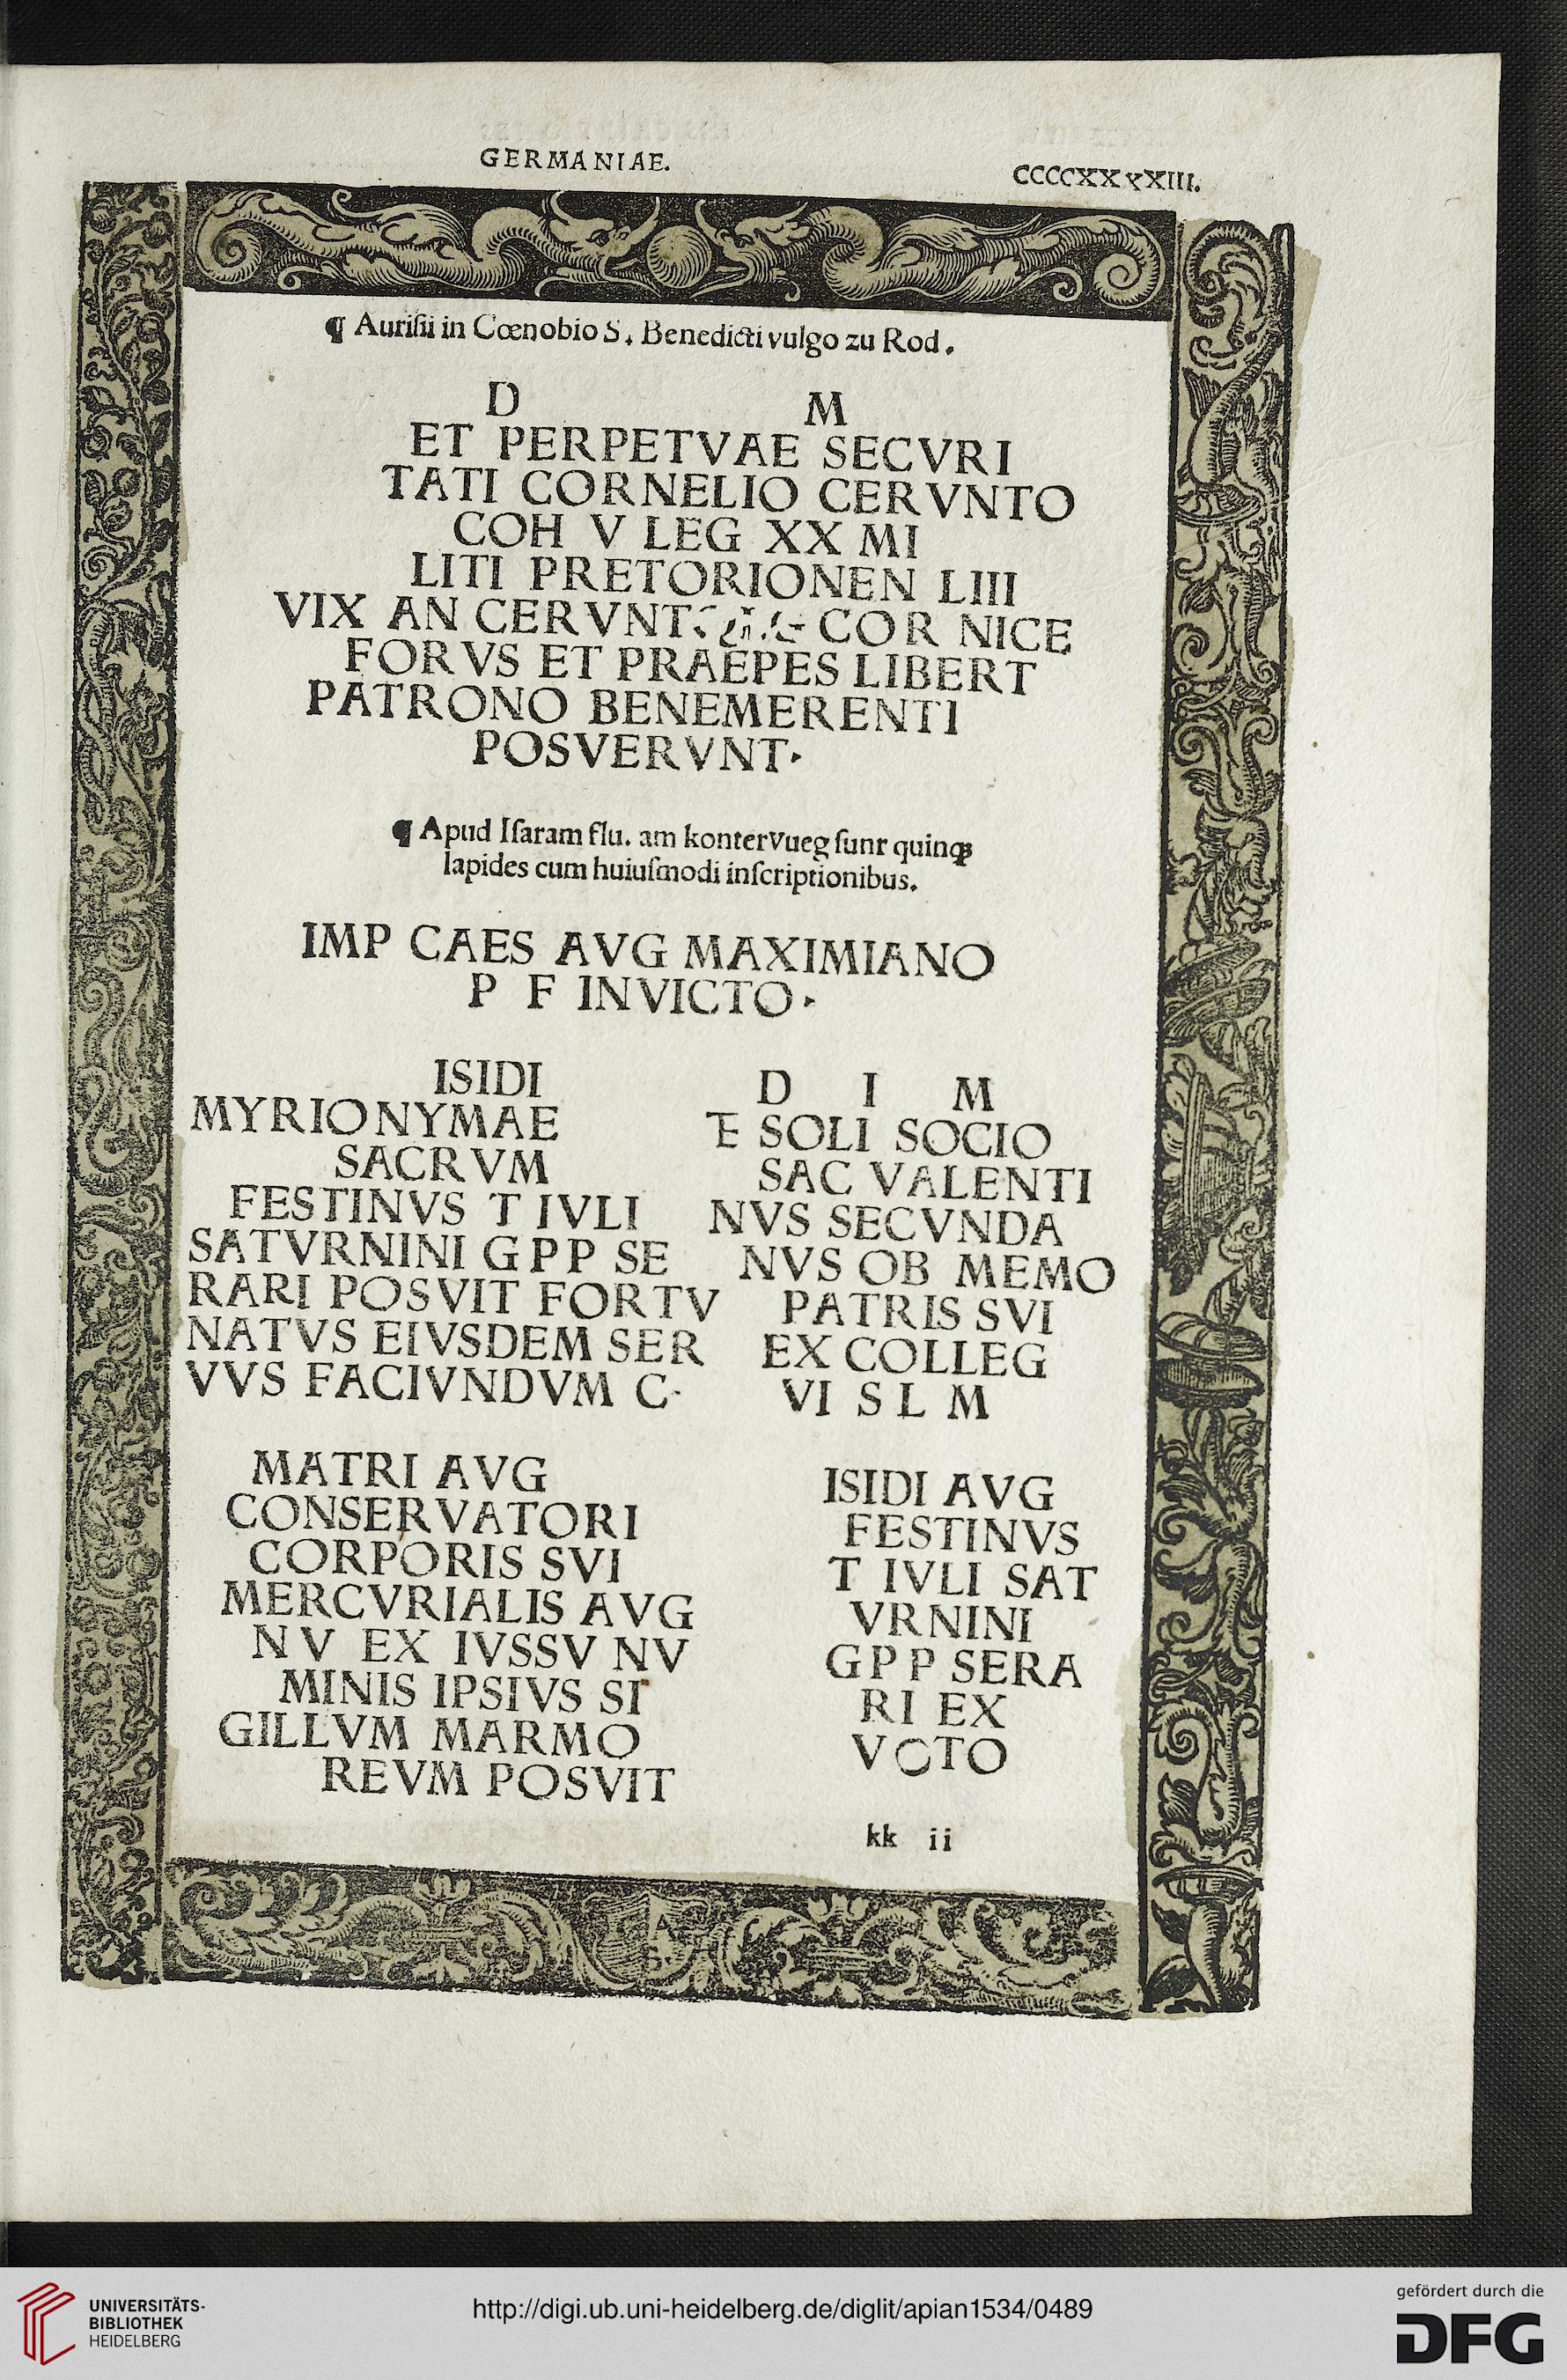 GERMANIAE.
CCCCXXXXIII.
¶ Aurisii in Cœnobio S. Benedicti vulgo zu Rod.
D M
ET PERPETVAE SECVRI
TATI CORNELIO CERVNTO
COH V LEG XX MI
LITI PRETORIONEN LIII
VIX AN CERVNT COR NICE
FORVS ET PRAEPES LIBERT
PATRONO BENEMERENTI
POSVERVNT·
¶ Apud Isaram flu. am konterVueg sunr quinqꝫ
lapides cum huiusmodi inscriptionibus.
IMP CAES AVG MAXIMIANO
P F INVICTO·
ISIDI
MYRIONYMAE
SACRVM
FESTINVS T IVLI
SATVRNINI G P P SE
RARI POSVIT FORTV
NATVS EIVSDEM SER
VVS FACIVNDVM C·
D I M
E SOLI SOCIO
SAC VALENTI
NVS SECVNDA
NVS OB MEMO
PATRIS SVI
EX COLLEG
VI S L M
MATRI AVG
CONSERVATORI
CORPORIS SVI
MERCVRIALIS AVG
N V EX IVSSV NV
MINIS IPSIVS SI
GILLVM MARMO
REVM POSVIT
ISIDI AVG
FESTINVS
T IVLI SAT
VRNINI
G P P SERA
RI EX
VOTO
kk ii
A
S
UNIVERSITÄTS-
BIBLIOTHEK
HEIDELBERG
http://digi.ub.uni-heidelberg.de/diglit/apian1534/0489
gefördert durch die
DFG